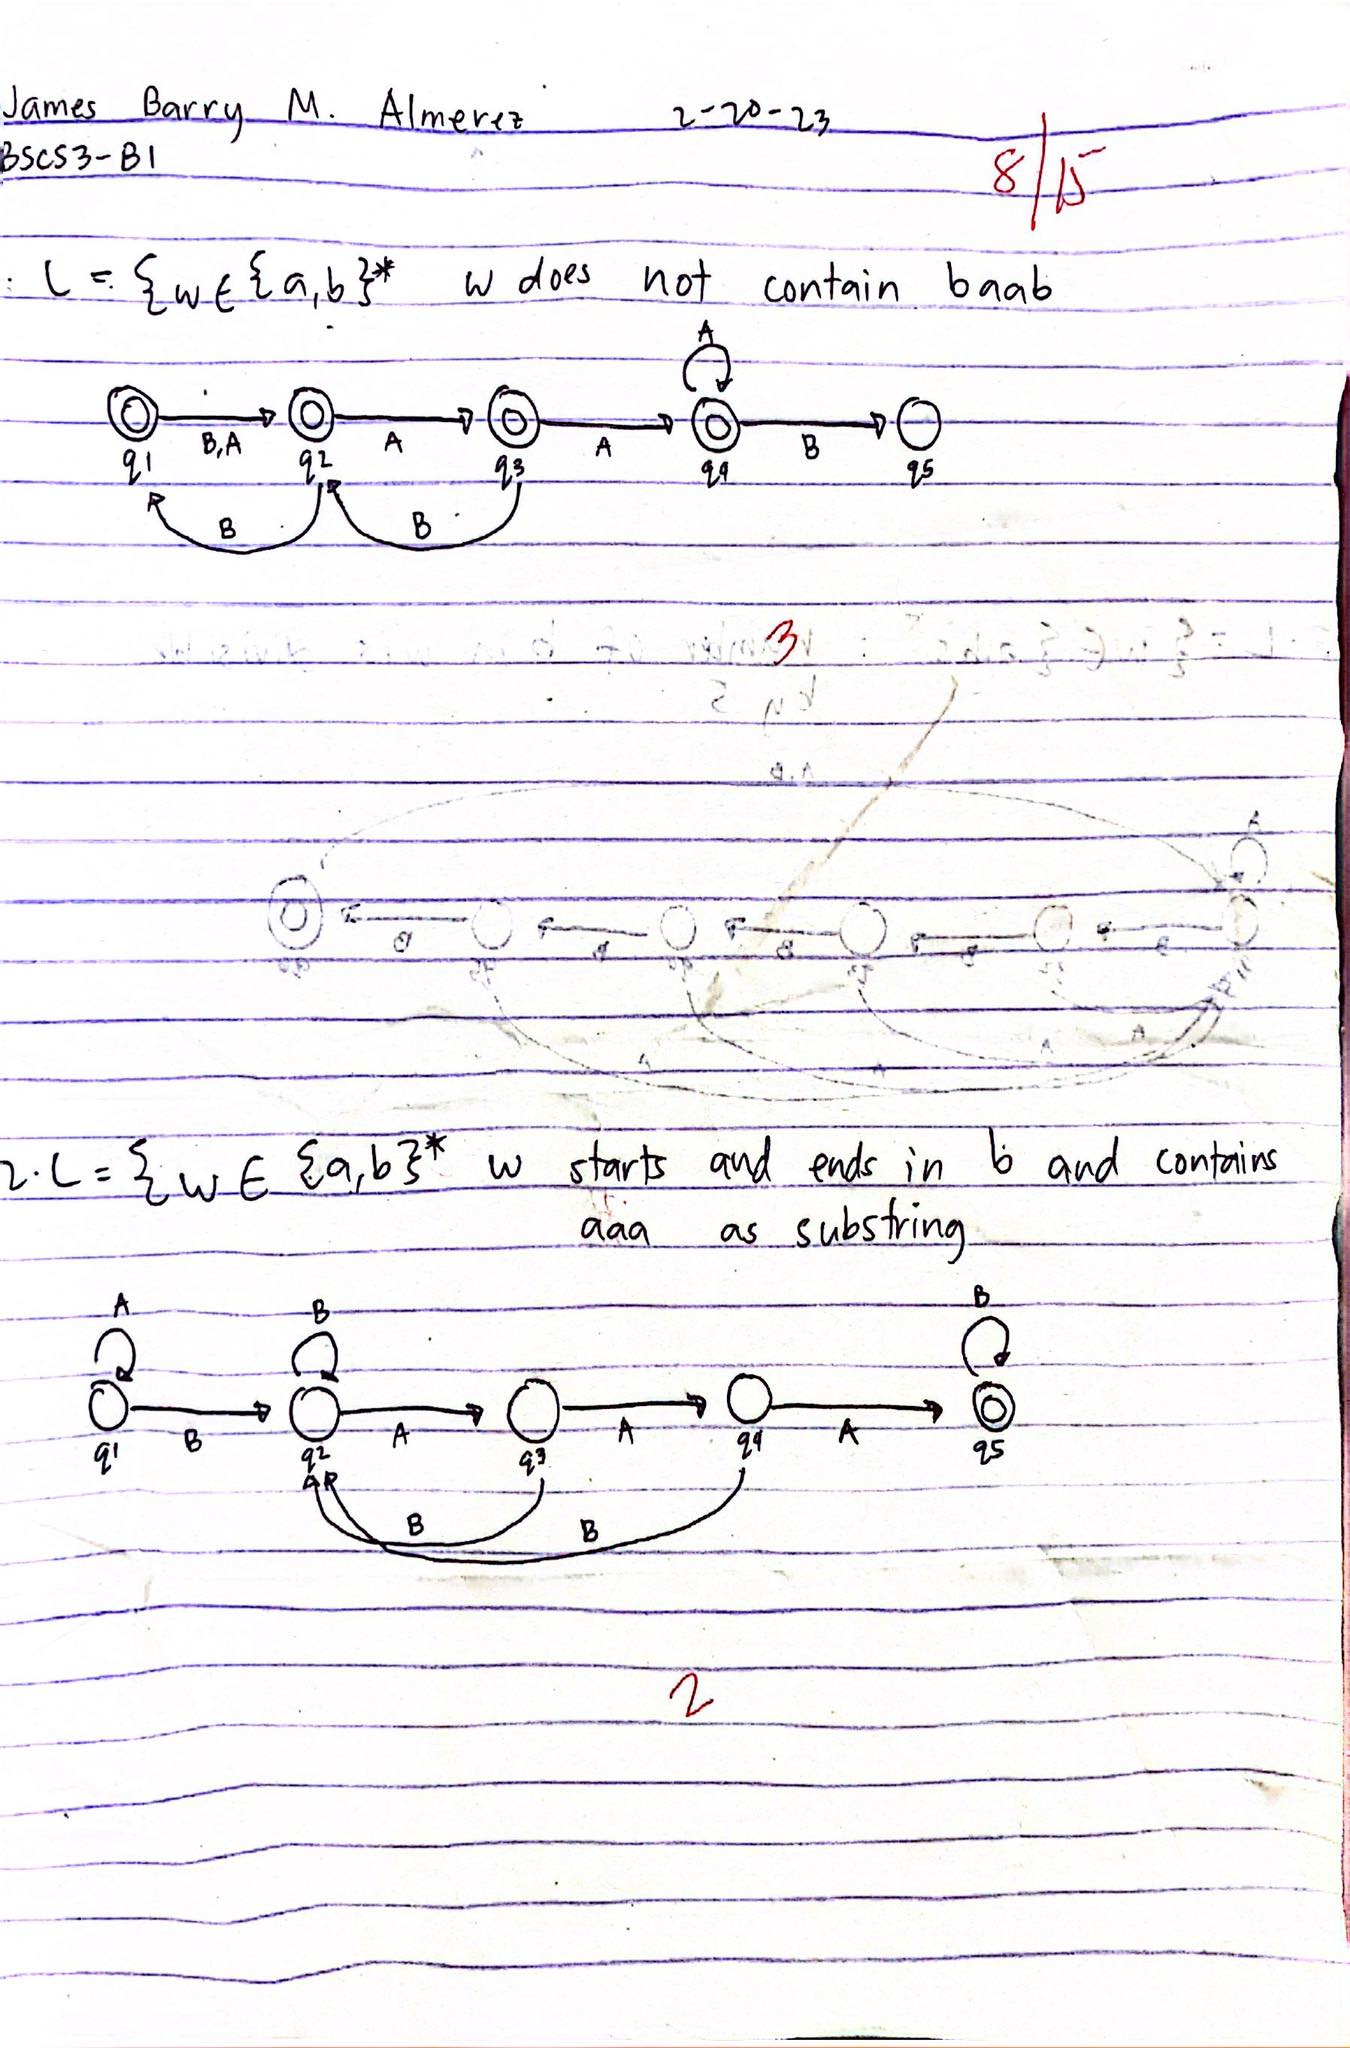 James Barry M. Almerez 2-20-23
BSCS3-B1
8/15
: L = {w ∈ {a,b}* w does not contain baab
A
B,A A A B
q1 q2 q3 q4 q5
B B
3
2. L = {w ∈ {a,b}* w starts and ends in b and contains
aaa as substring
A B B
B A A A
q1 q2 q3 q4 q5
B B
2